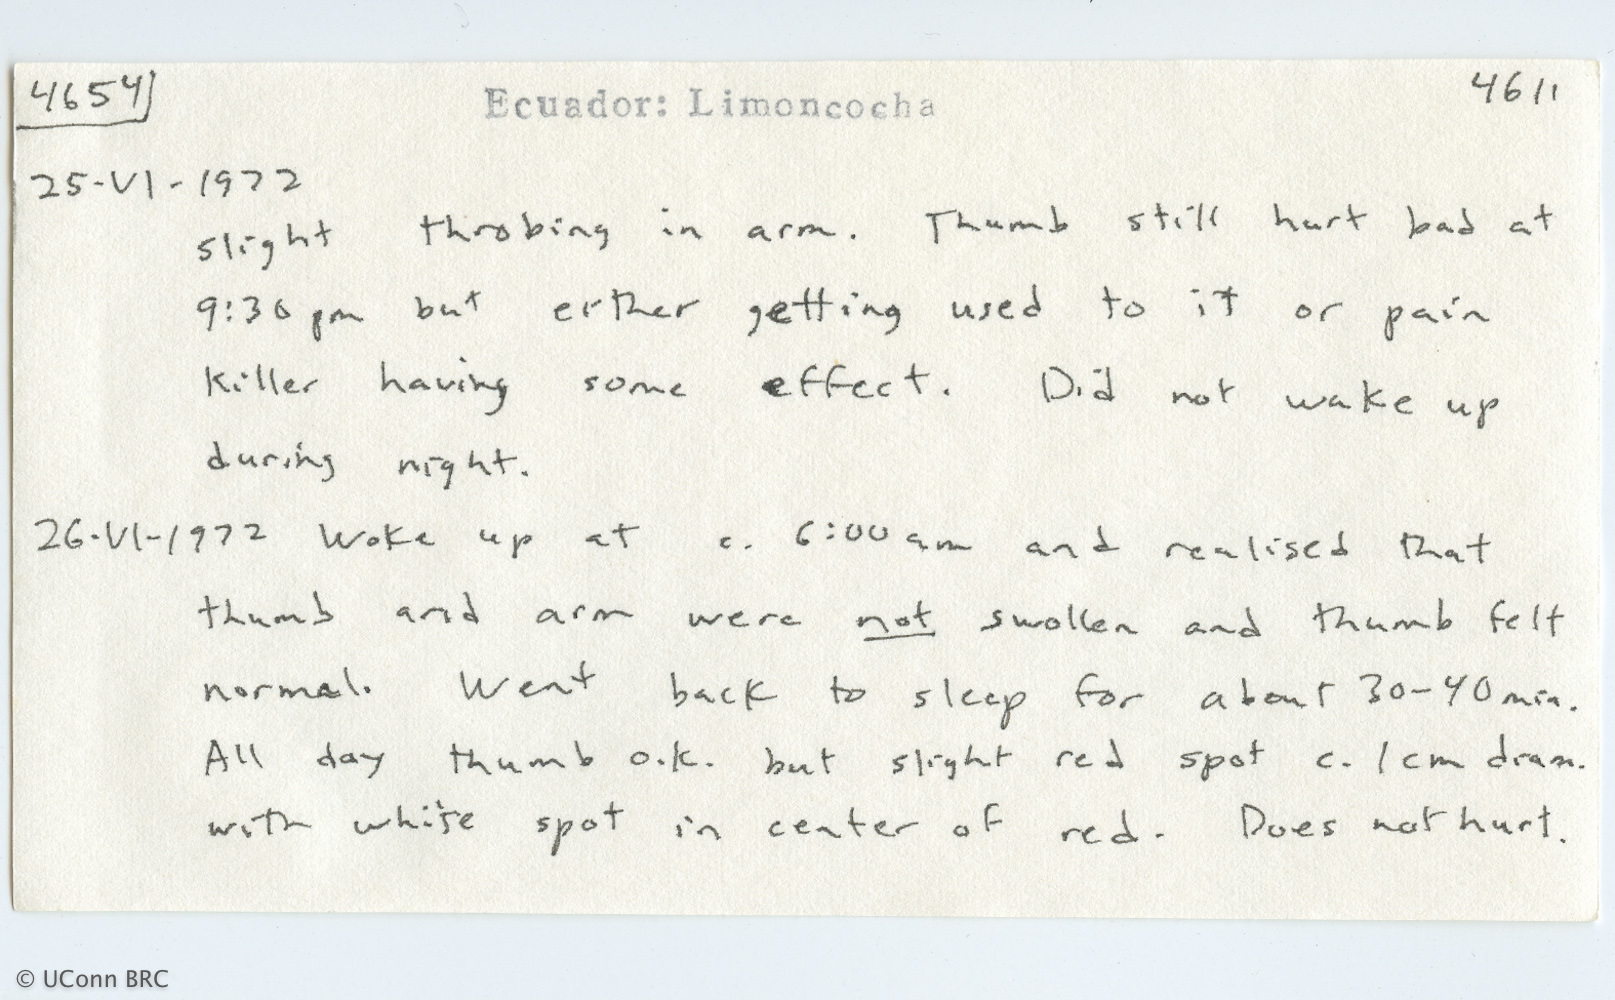 4654
Ecuador: Limoncocha
4611
25-VI-1972
slight throbing in arm. Thumb still hurt bad at
9:30 pm but either getting used to it or pain
killer having some effect. Did not wake up
during night.
26-VI-1972 Woke up at c. 6:00 am and realised that
thumb and arm were not swollen and thumb felt
normal. Went back to sleep for about 30-40 min.
All day thumb o.k. but slight red spot c. 1 cm diam.
with white spot in center of red. Does not hurt.
© UConn BRC